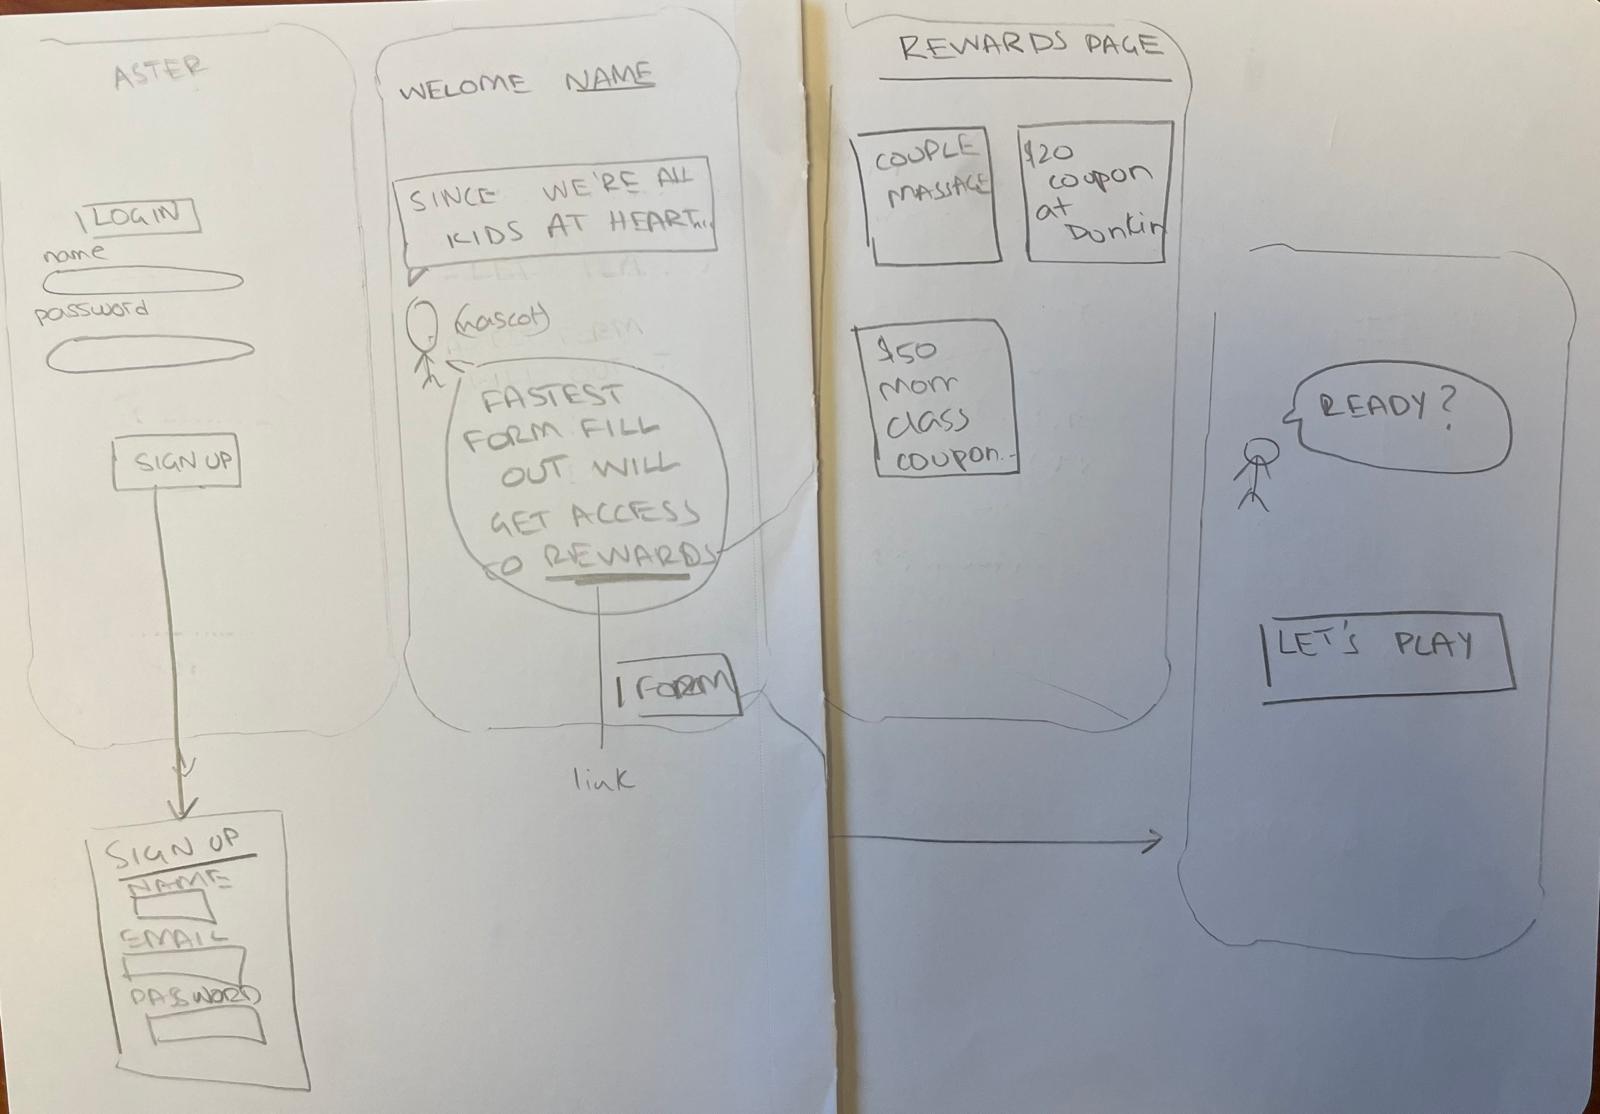 ASTER
LOGIN
name
password
SIGN UP
SIGN UP
NAME
EMAIL
PASSWORD
WELOME NAME
SINCE WE'RE ALL
KIDS AT HEART...
(mascot)
FASTEST
FORM FILL
OUT WILL
GET ACCESS
TO REWARDS
FORM
link
REWARDS PAGE
COUPLE
MASSAGE
$20
coupon
at
Dunkin
$50
mom
class
coupon..
READY?
LET'S PLAY